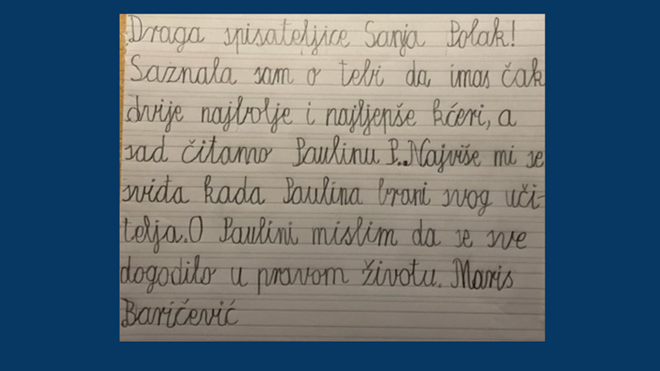 Draga spisateljice Sanja Polak!
Saznala sam o tebi da imaš čak
dvije najbolje i najljepše kćeri, a
sad čitamo Paulinu P..Najviše mi se
sviđa kada Paulina brani svog uči-
telja.O Paulini mislim da se sve
dogodilo u pravom životu. Maris
Baričević